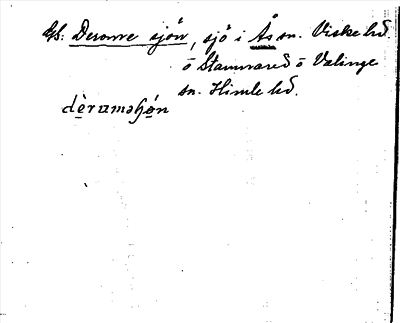 GS: Derome sjön, sjö i Ås sn. Viske hd.
o Stamnared o Valinge
sn. Himle hd.
dèrɯməɧón